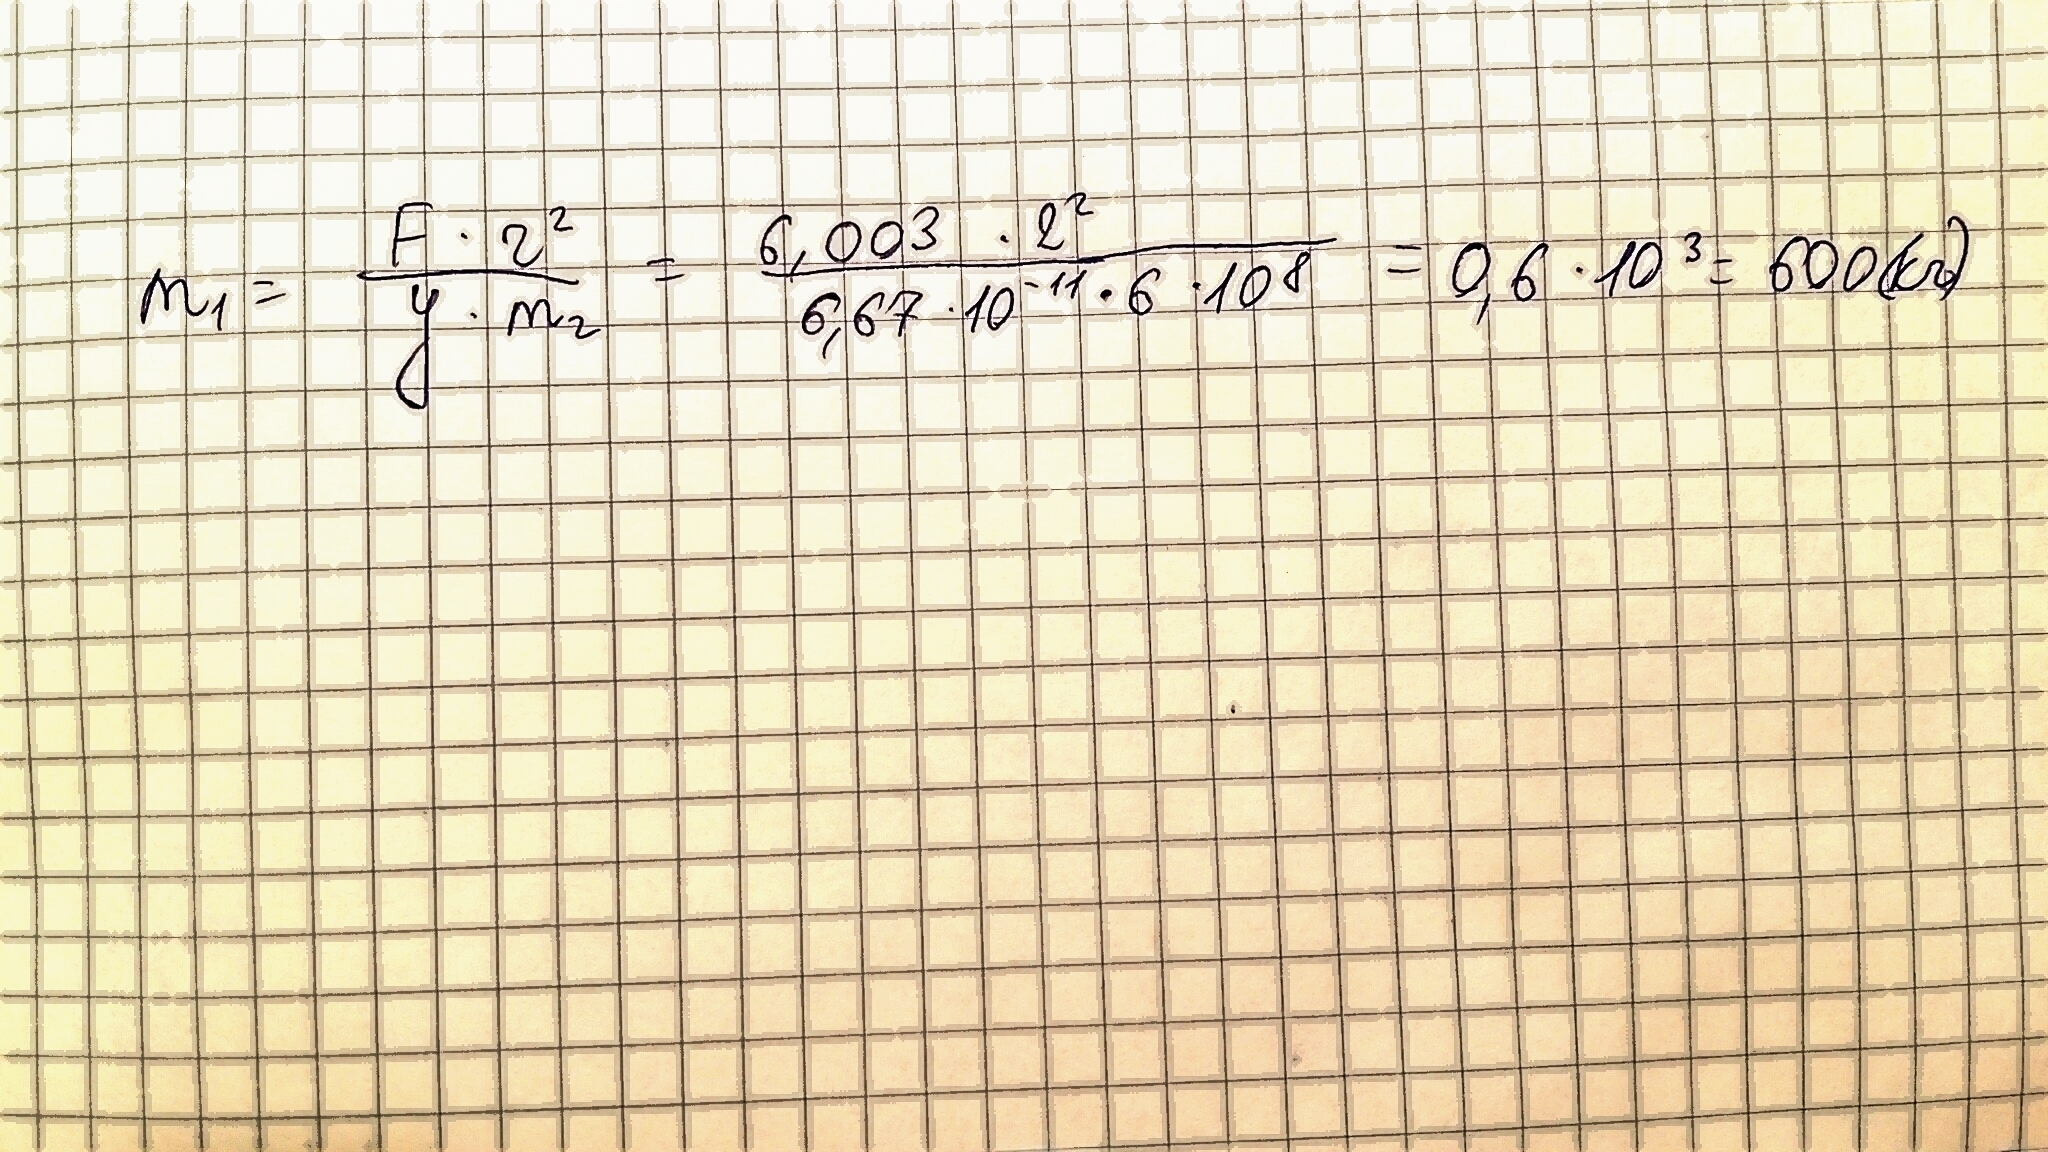 m₁ = F · r² / y · m₂ = 6,003 · 2² / 6,67 · 10⁻¹¹ · 6 · 10⁸ = 0,6 · 10³ = 600(кг)